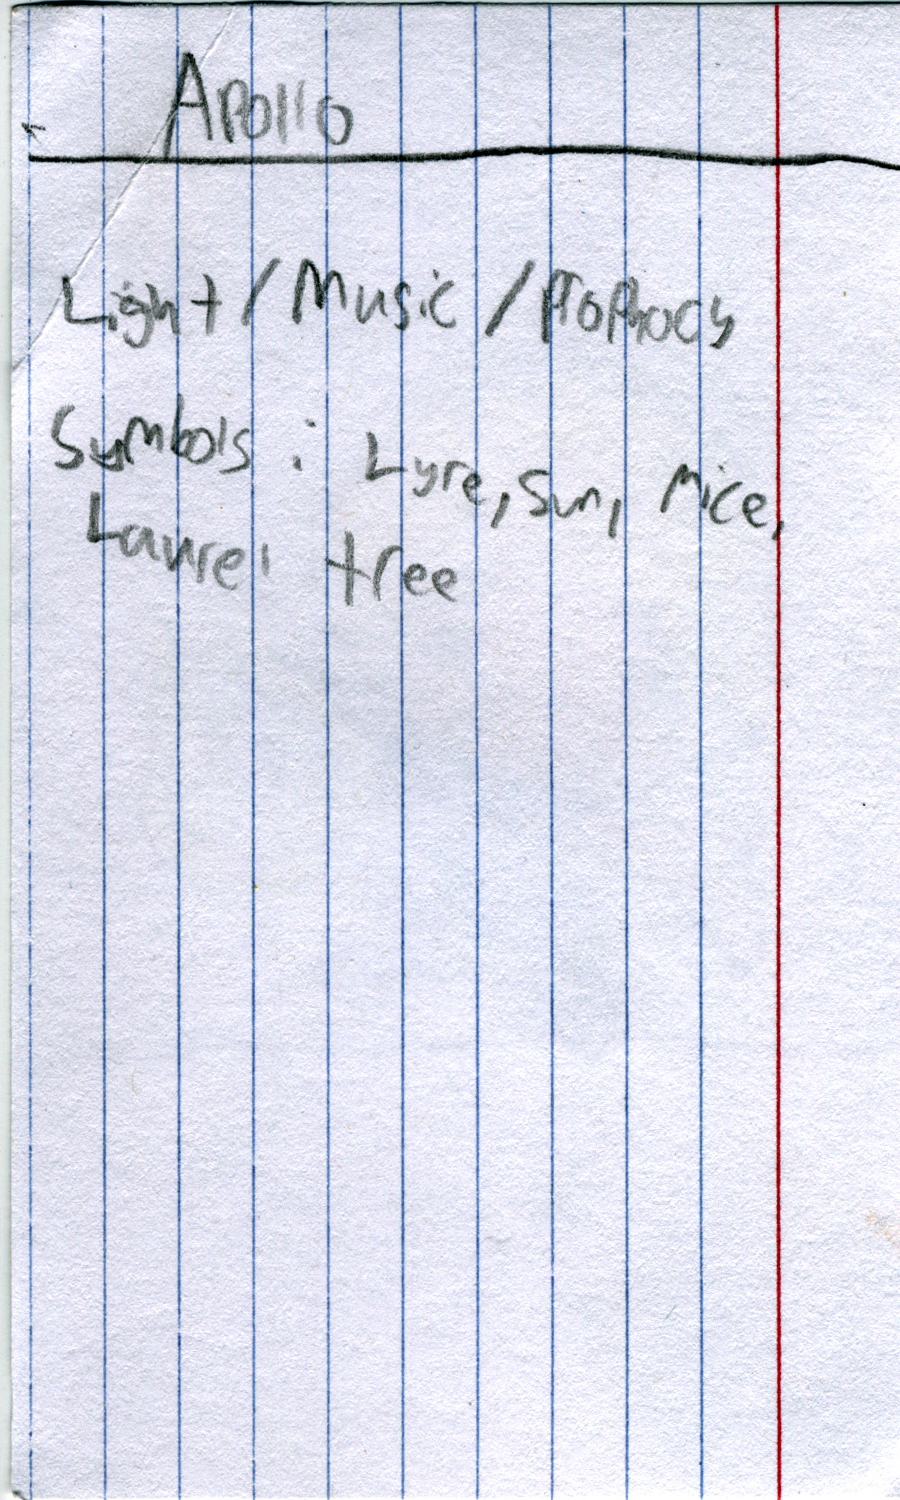 Apollo
Light / Music / Prophocy
Symbols : Lyre, Sun, Mice,
Laurel tree